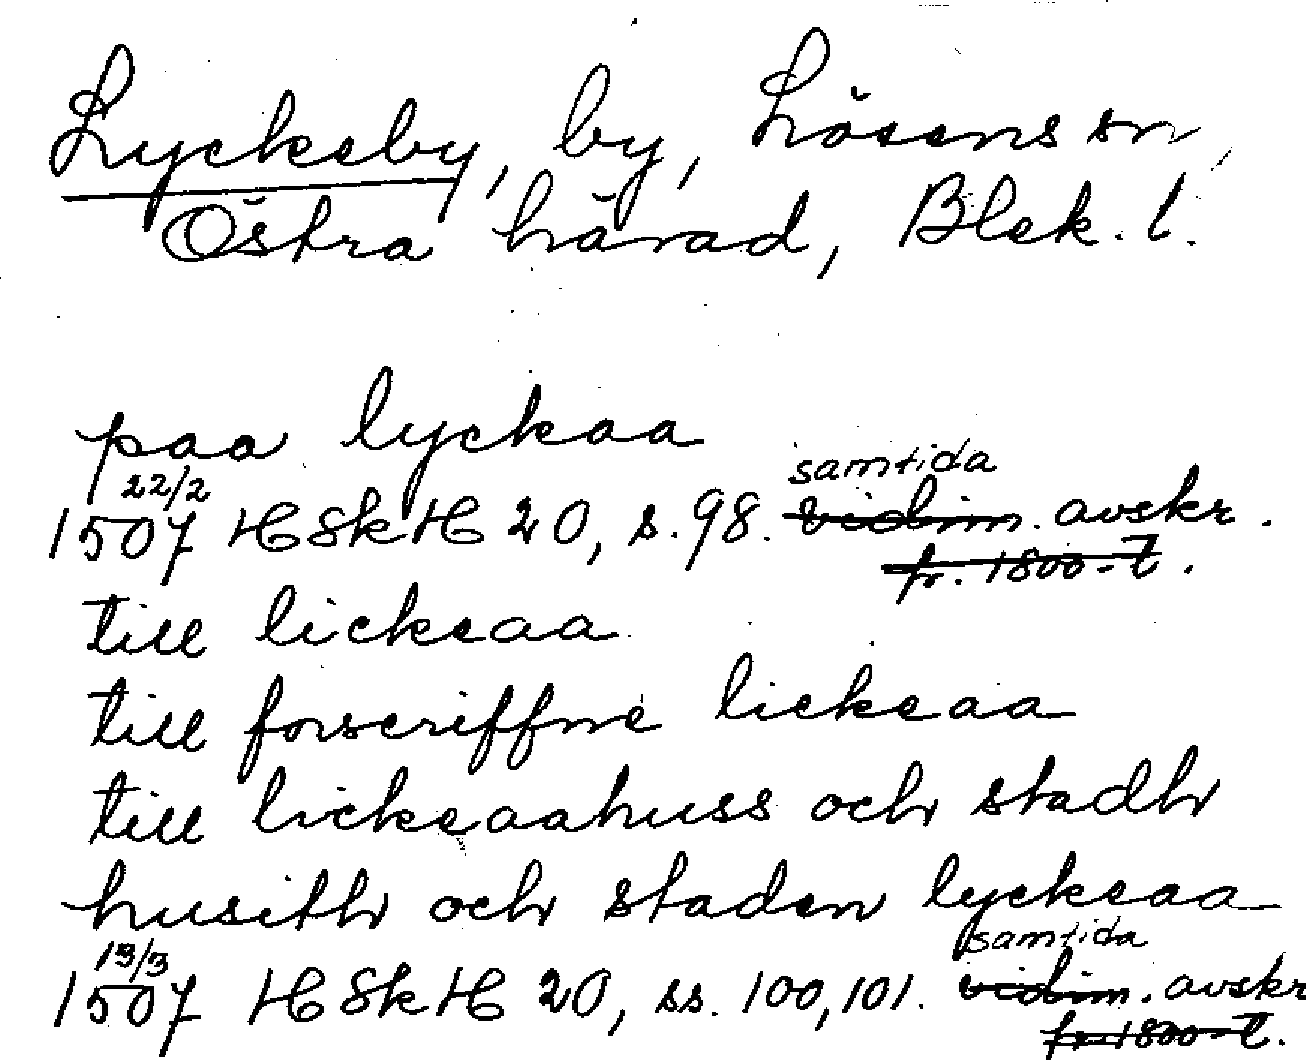 Lyckeby, by, Lösens sn,
Östra härad, Blek. l.
paa lyckaa
22/2 samtida
1507 HSkH 20, s. 98. vidim. avskr.
fr. 1800-t.
till lickeaa
till forscriffne lickeaa
till lickeaahuss och stadh
husith och staden lyckeaa
13/3 samtida
1507 HSkH 20, ss. 100, 101. vidim. avskr
fr 1800-t.